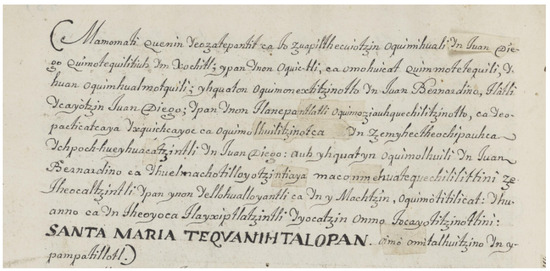 (Mamomati Quenin Yeozatepantit ca Yo zuapilthecuiotzin Oquimihuali Yn Iuan Die=
go Quimotequilitiuh Yn Xochitl; ypan Ynon Oquictli, ca omohuicat Quimmotetequili, Y=
huan Oquimhualmotquili; yhquaton Oquimonextitzinotto Yn Iuan Bernardino, Ytlatli
Ycayotzin Iuan Diego; Ypan Ynon Ilanepanthatli Oquimoziauhquechilitzinotto, ca Yeo=
pactticatcaya Yxquichcayoc ca Oquimolhuilitzinotca Yn Zemyhectheochipauhca
Ychpoch hueyhuacatzintli Yn Iuan Diego: auh yhquatyn Oquimolhuili Yn Iuan
Bernardino ca Yhuelmachotilloyotzintiaya maconmehuatequechililittini ze
Theocaltzintli Ypan ynon Yellohualloyantli ca Yn y Machtzin, Oquimotitilicat: Yhu=
anno ca Yn Theoyoca Tlayxiptlatzintli Yyocatzin Onmo Tocayotitzinottini:
SANTA MARIA TEQVANIHTALOPAN. omitalhuitzino Yn y=
pampatillotl.)